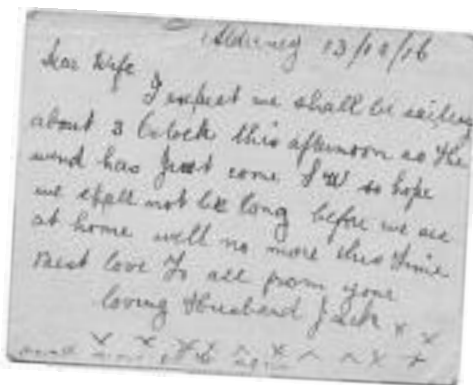 Alderney 13/10/16
Dear Wife
I expect we shall be sailing
about 3 oclock this afternoon as the
wind has just come S W so hope
we shall not be long before we are
at home well no more this time
best love to all from your
loving Husband Jack x x
x x x x x x x x